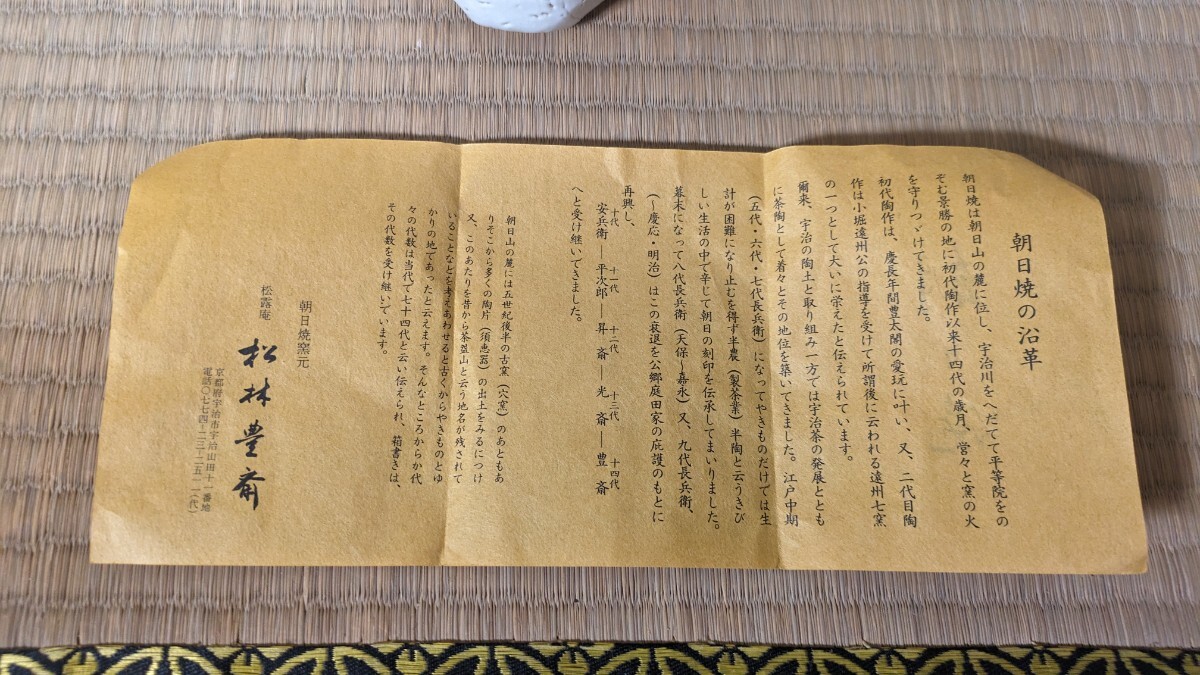 朝日焼の沿革
朝日焼は朝日山の麓に位し、宇治川をへだてて平等院をの
ぞむ景勝の地に初代陶作以来十四代の歳月、営々と窯の火
を守りつゞけてきました。
初代陶作は、慶長年間豊太閤の愛玩に叶い、又、二代目陶
作は小堀遠州公の指導を受けて所謂後に云われる遠州七窯
の一つとして大いに栄えたと伝えられています。
爾来、宇治の陶土と取り組み一方では宇治茶の発展ととも
に茶陶として着々とその地位を築いてきました。江戸中期
（五代・六代・七代長兵衛）になってやきものだけでは生
計が困難になり止むを得ず半農（製茶業）半陶と云うきび
しい生活の中で辛じて朝日の刻印を伝承してまいりました。
幕末になって八代長兵衛（天保〜嘉永）又、九代長兵衛、
（〜慶応・明治）はこの衰退を公郷庭田家の庇護のもとに
再興し、
十代 十一代 十二代 十三代 十四代
安兵衛―平次郎―昇斎―光斎―豊斎
へと受け継いできました。
朝日山の麓には五世紀後半の古窯（穴窯）のあともあ
りそこから多くの陶片（須恵器）の出土をみるにつけ
又、このあたりを昔から茶盌山と云う地名が残されて
いることなどを考えあわせると古くからやきものとゆ
かりの地であったと云えます。そんなところからか代
々の代数は当代で七十四代と云い伝えられ、箱書きは、
その代数を受け継いでいます。
朝日焼窯元
松露庵
松林豊斎
京都府宇治市宇治山田十一番地
電話〇七七四―二三―二五一一（代）